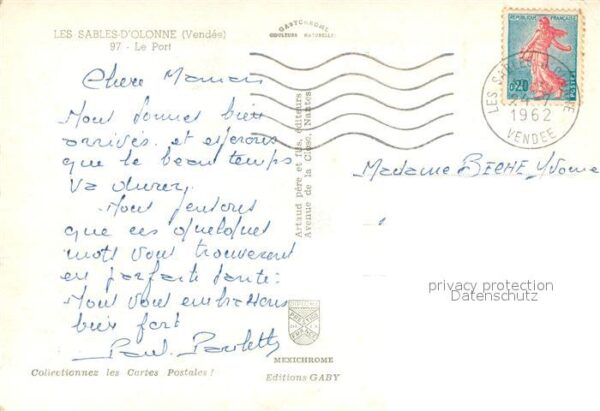 LES SABLES-D'OLONNE (Vendée)
97 - Le Port
GASTCHROME
COULEURS NATURELLES
Chère Maman
Nous sommes bien
arrivés et espérons
que le beau temps
va durer.
Nous pensons
que ces quelques
mots vous trouveront
en parfaite santé.
Nous vous embrassons
bien fort
Paul. Paulette
Collectionnez les Cartes Postales !
Artaud père et fils, éditeurs
Avenue de la Close, Nantes
MEXICHROME
Editions GABY
REPUBLIQUE FRANÇAISE
0,20
LES SABLES D'OLONNE
1962
VENDEE
Madame BECHE Yvonne
privacy protection
Datenschutz